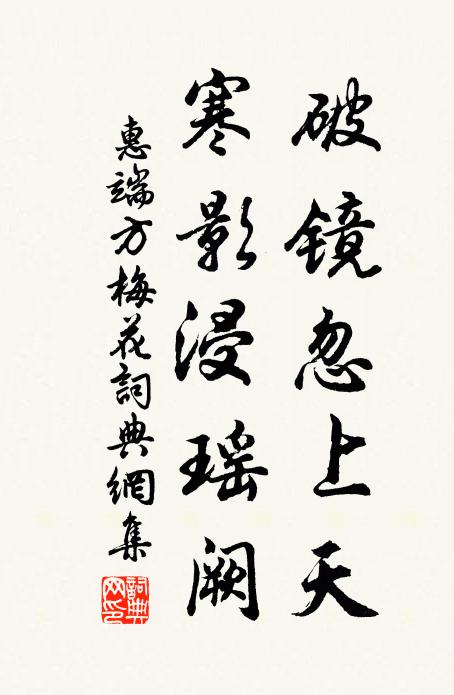 破镜忽上天
寒影浸瑶阙
惠端方梅花詞典網集
詞典
网印